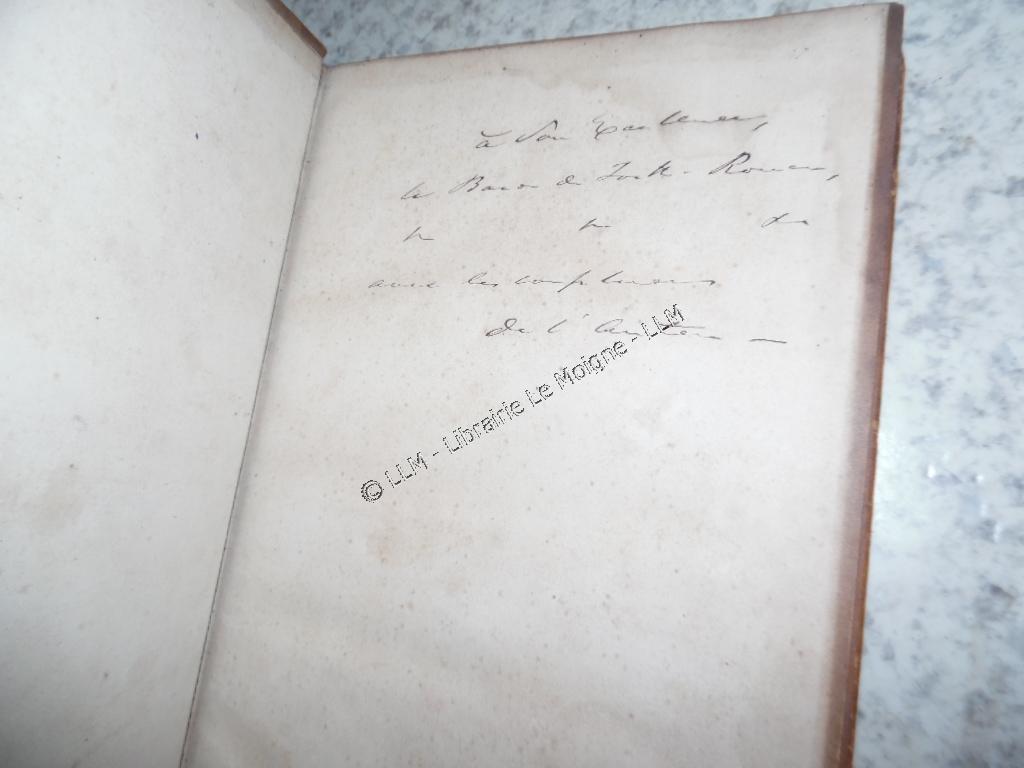 à Son Excellence,
le Baron de
avec les compliments
de l'Auteur —
© LLM - Librairie Le Moigne - LLM